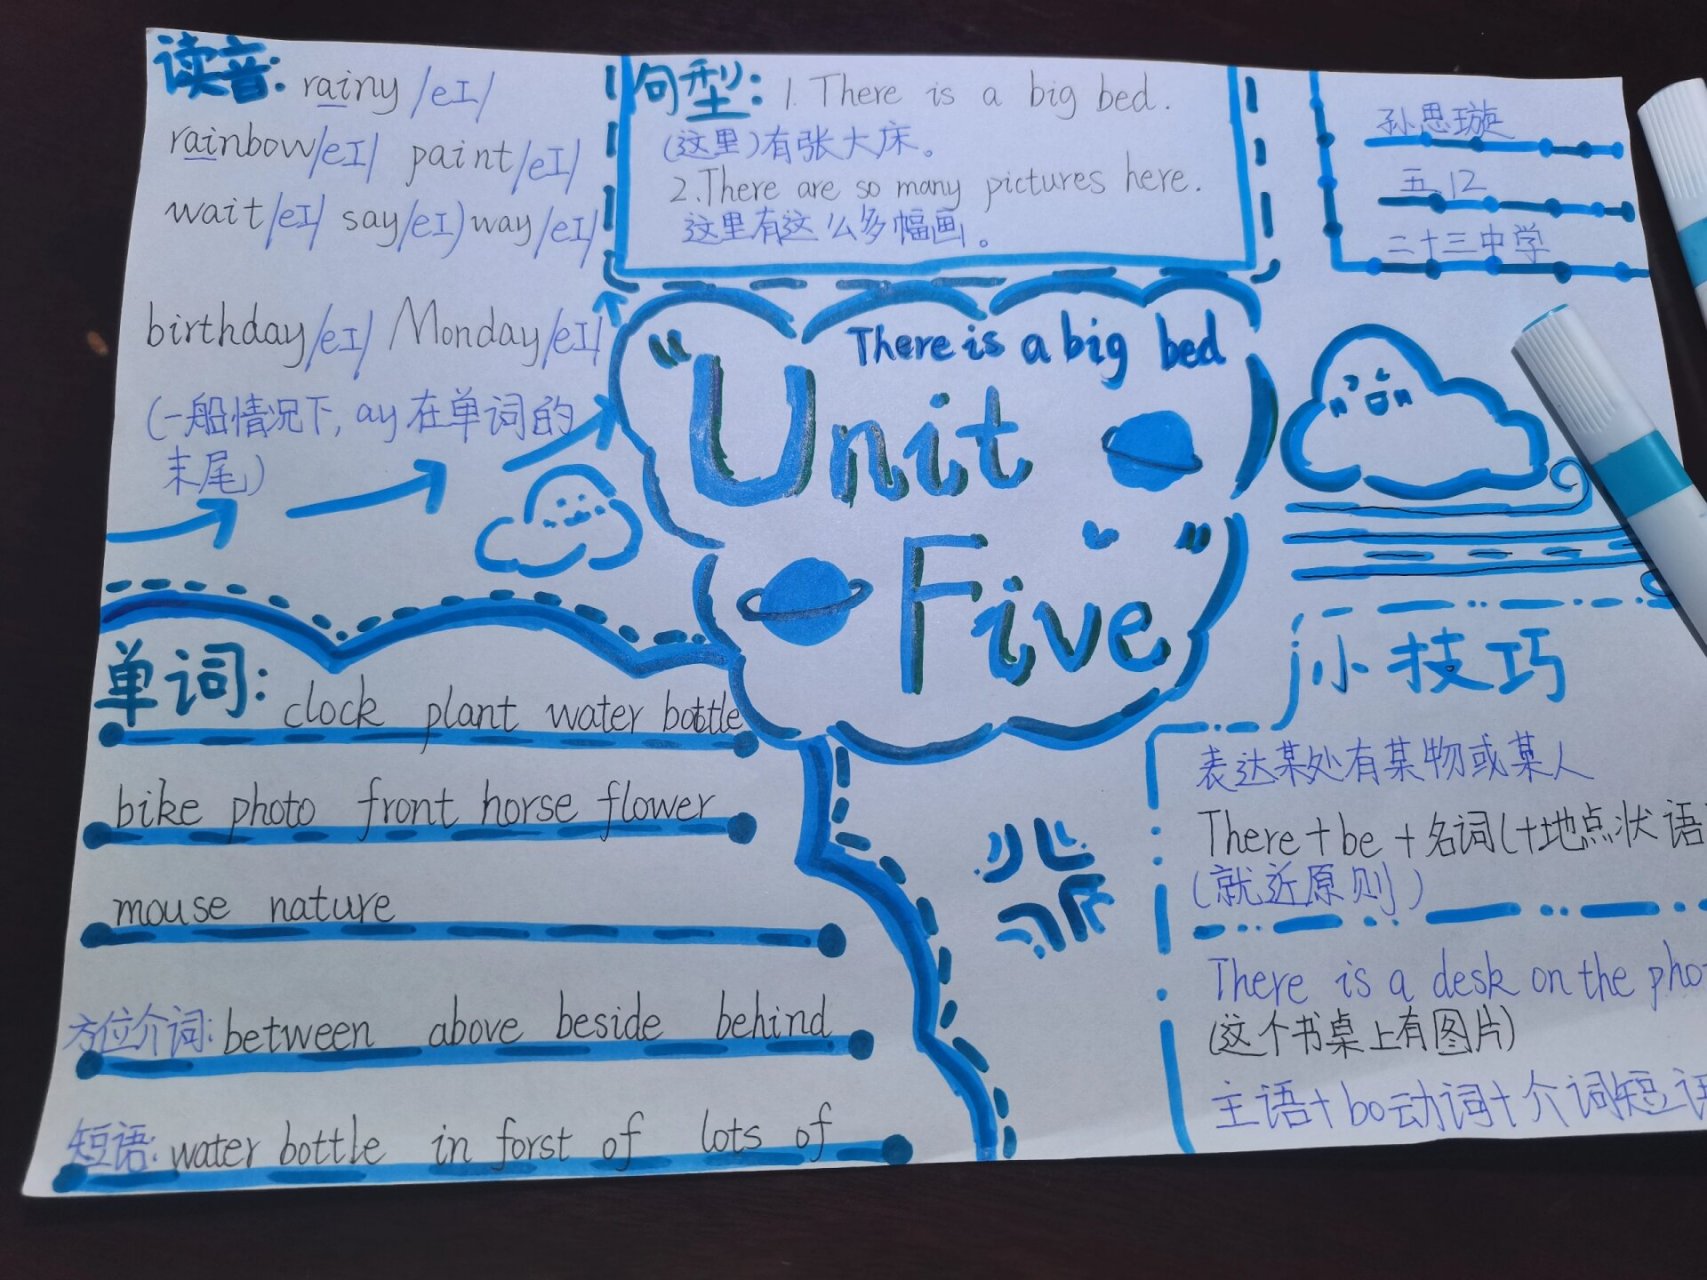 读音: rainy /eI/
rainbow/eI/ paint/eI/
wait/eI/ say/eI) way/eI/
birthday/eI/ Monday/eI/
(一般情况下, ay在单词的
末尾)
句型: 1. There is a big bed.
(这里)有张大床。
2.There are so many pictures here.
这里有这么多幅画。
孙思璇
五12
二十三中学
There is a big bed
"Unit
Five"
单词: clock plant water bottle
bike photo front horse flower
mouse nature
方位介词: between above beside behind
短语: water bottle in forst of lots of
小技巧
表达某处有某物或某人
There+be+名词(+地点状语
(就近原则)
There is a desk on the pho
(这个书桌上有图片)
主语+bo动词+介词短语